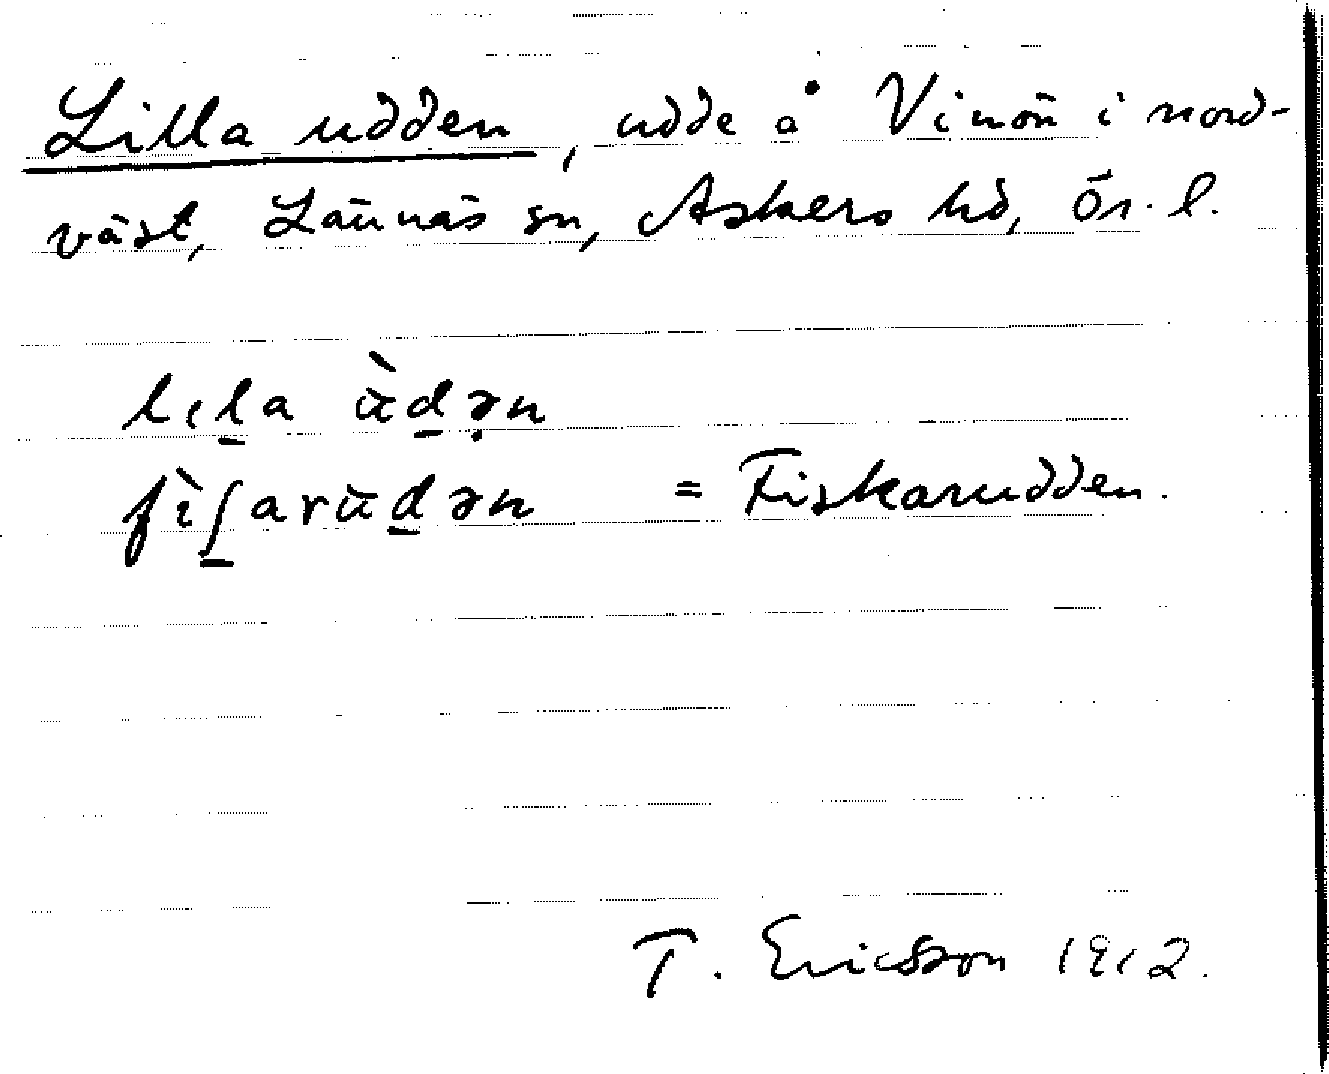 Lilla udden, udde å Vinön i nord-
väst, Lännäs sn, Askers hd, Ör. l.
lıl̲a ὰd̲ən
fìʃ̲aràd̲ən = Fiskarudden.
T. Ericsson 1912.